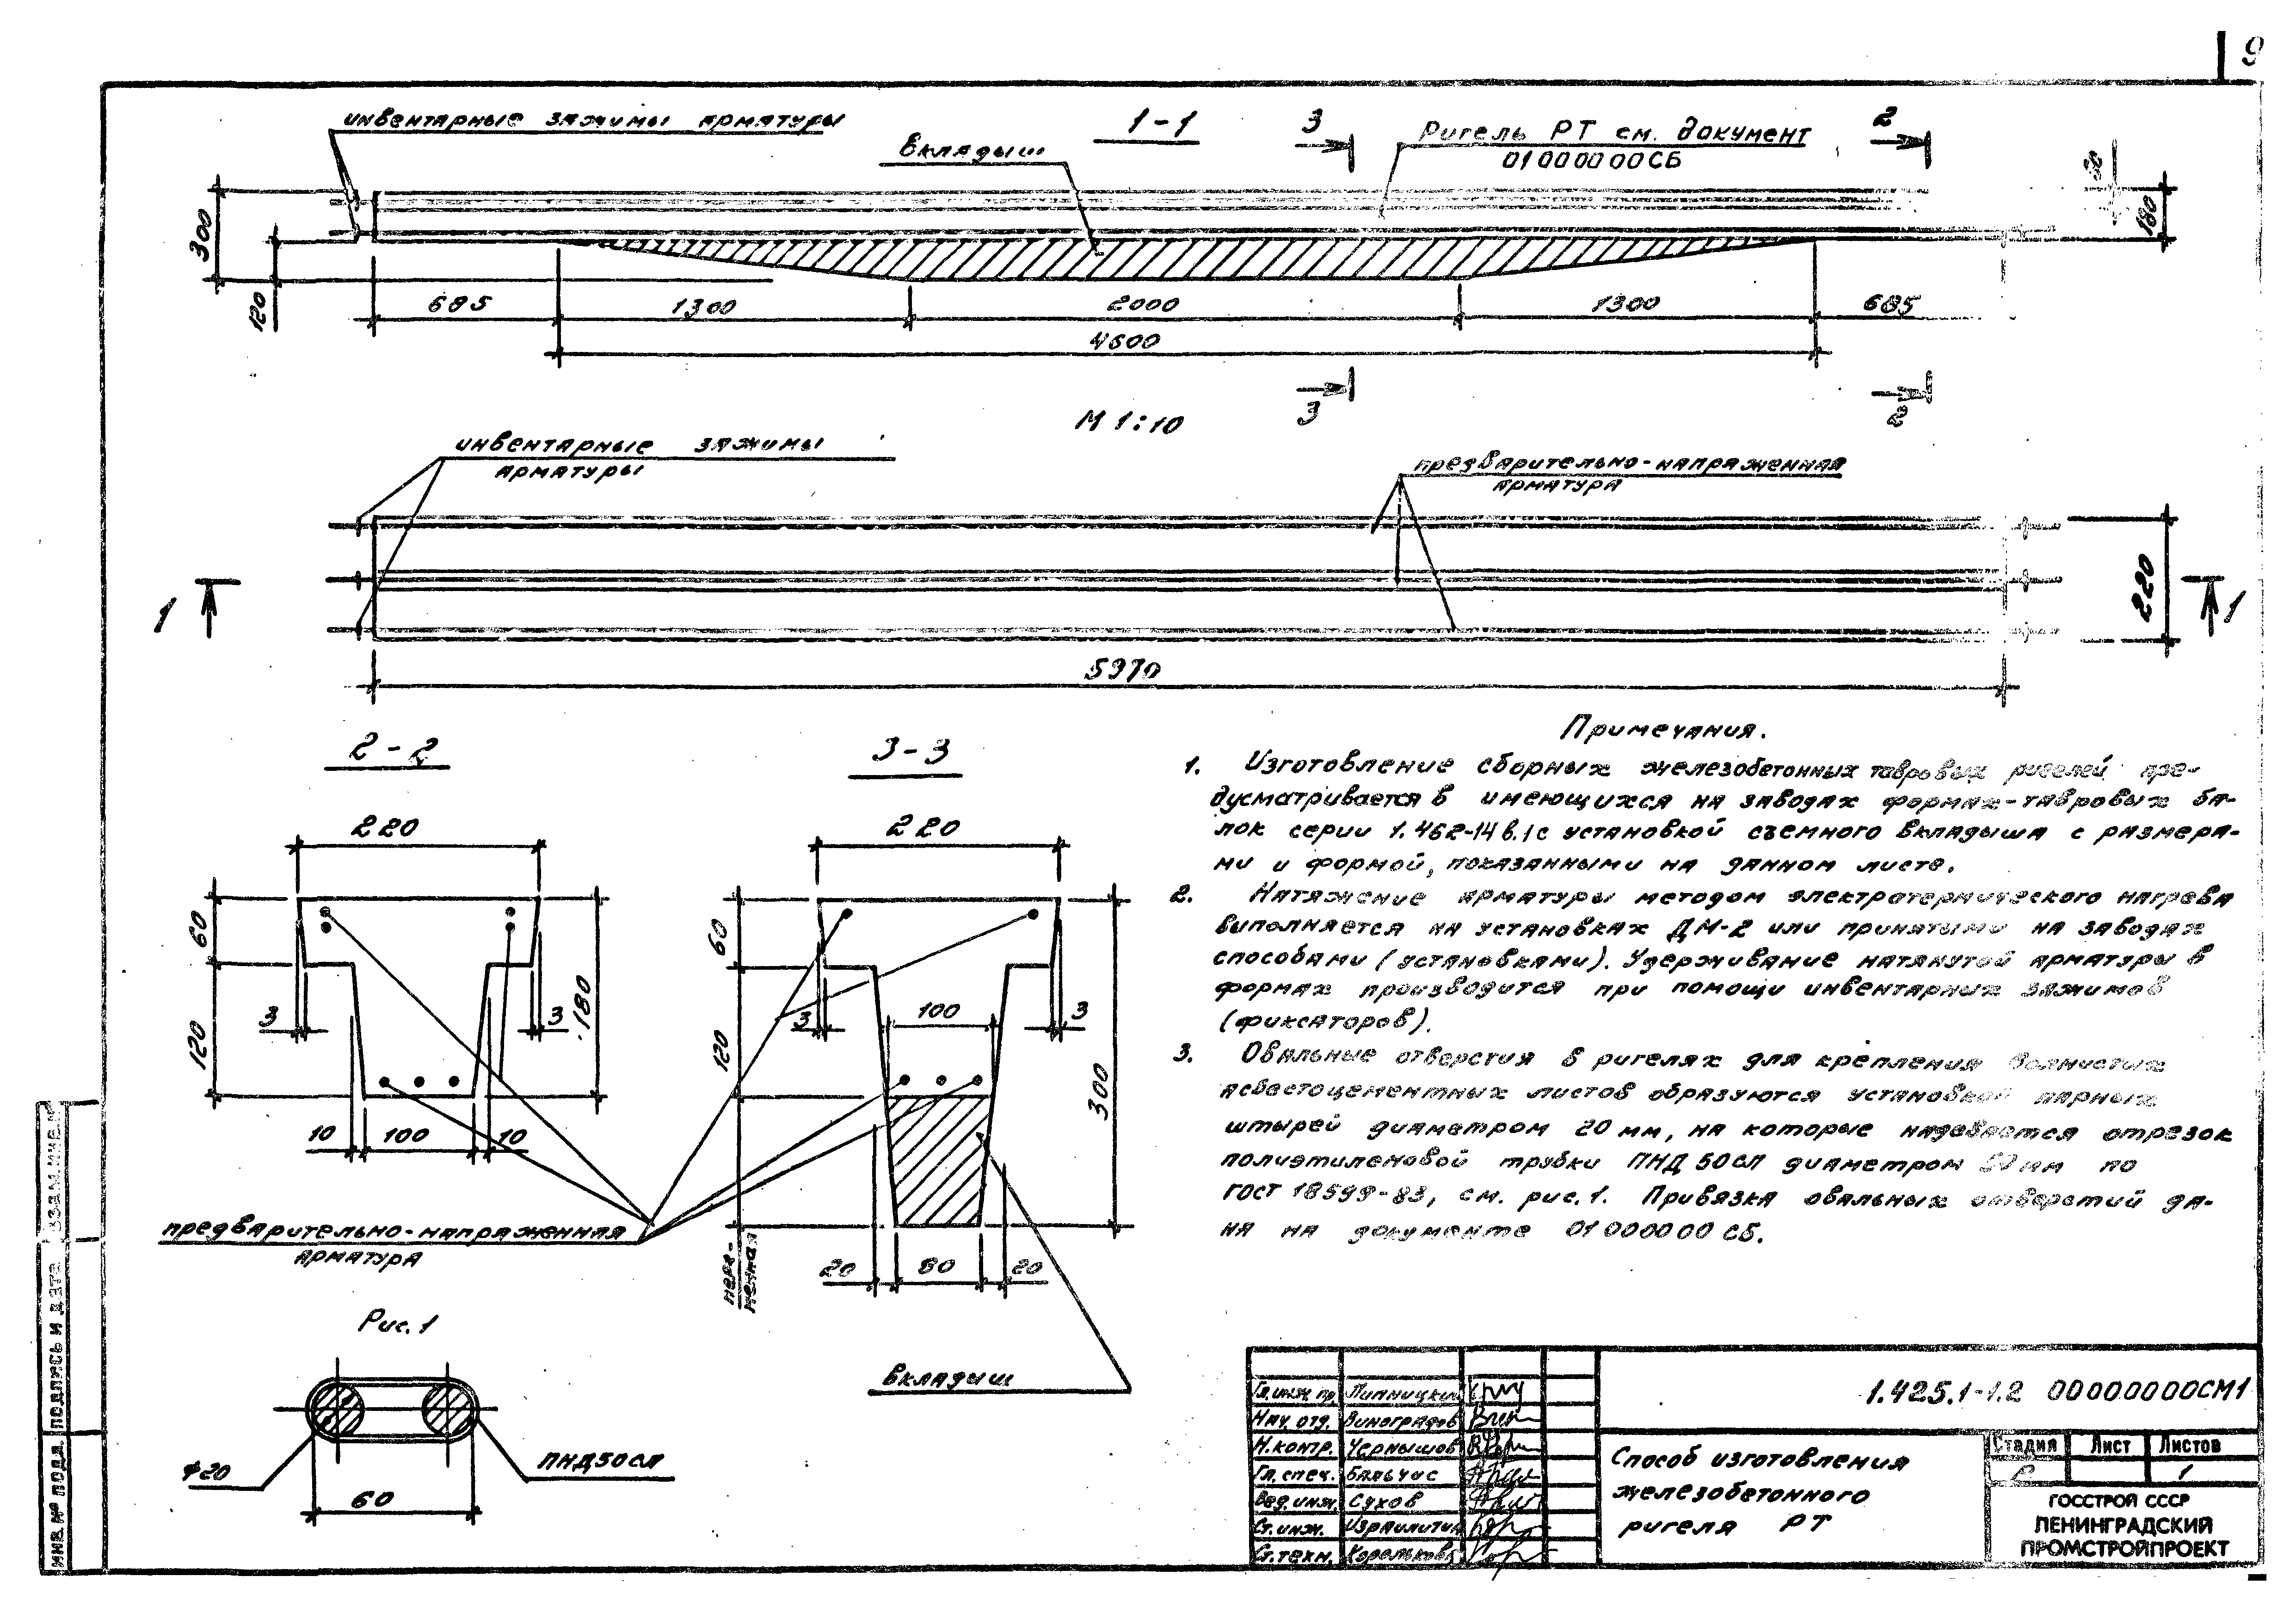 9
инвентарные зажимы арматуры
1-1
3
Ригель РТ см. документ
01000000СБ
2
Вкладыш
60
300
180
120
685
1300
2000
1300
685
4600
3
2
М 1:10
инвентарные зажимы
арматуры
предварительно-напряженная
арматура
1
220
1
5970
2-2
3-3
220
220
60
120
3
3
180
10
100
10
60
120
3
100
3
300
предварительно-напряженная
арматура
пере-
менная
20
80
20
Рис. 1
вкладыш
ф20
ПНД50СЛ
60
Примечания.
1. Изготовление сборных железобетонных тавровых ригелей пре-
дусматривается в имеющихся на заводах формах-тавровых ба-
лок серии 1.462-14 в.1 с установкой съемного вкладыша с размера-
ми и формой, показанными на данном листе.
2. Натяжение арматуры методом электротермического нагрева
выполняется на установках ДМ-2 или принятыми на заводах
способами (установками). Удерживание натянутой арматуры в
формах производится при помощи инвентарных зажимов
(фиксаторов).
3. Овальные отверстия в ригелях для крепления волнистых
асбестоцементных листов образуются установкой парных
штырей диаметром 20 мм, на которые надевается отрезок
полиэтиленовой трубки ПНД 50СЛ диаметром 50 мм по
ГОСТ 18599-83, см. рис. 1. Привязка овальных отверстий да-
на на документе 01000000 СБ.
1.425.1-1.2 00000000СМ1
Гл.инж.пр. Липницкий
Нач. отд. Виноградов
Н.контр. Чернышов
Гл. спец. Бальчас
Вед. инж. Сухов
Ст. инж.
Ст. техн. Королькова
Способ изготовления
железобетонного
ригеля РТ
Стадия Лист Листов
Р 1
ГОССТРОЙ СССР
ЛЕНИНГРАДСКИЙ
ПРОМСТРОЙПРОЕКТ
инв. № подл. подпись и дата взам. инв. №